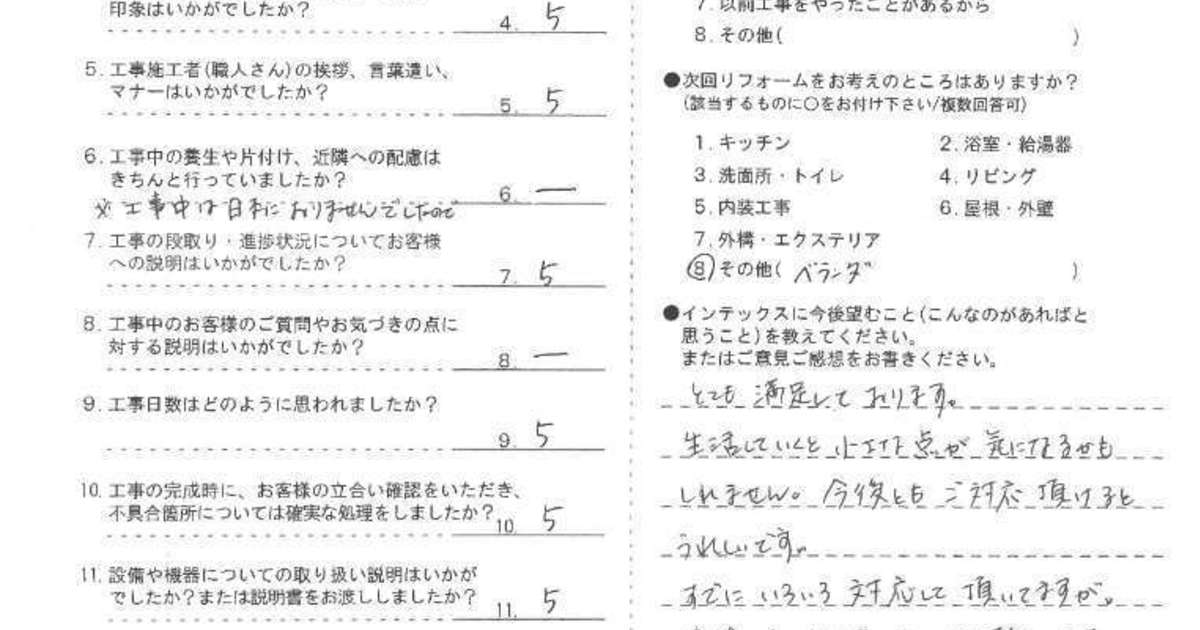 印象はいかがでしたか？
4. 5
5. 工事施工者(職人さん)の挨拶、言葉遣い、
マナーはいかがでしたか？
5. 5
6. 工事中の養生や片付け、近隣への配慮は
きちんと行っていましたか？
6. ー
※ 工事中は日本におりませんでしたので
7. 工事の段取り・進捗状況についてお客様
への説明はいかがでしたか？
7. 5
8. 工事中のお客様のご質問やお気づきの点に
対する説明はいかがでしたか？
8. ー
9. 工事日数はどのように思われましたか？
9. 5
10. 工事の完成時に、お客様の立合い確認をいただき、
不具合箇所については確実な処理をしましたか？
10. 5
11. 設備や機器についての取り扱い説明はいかが
でしたか？または説明書をお渡ししましたか？
11. 5
7. 以前工事をやったことがあるから
8. その他( )
●次回リフォームをお考えのところはありますか？
(該当するものに○をお付け下さい/複数回答可)
1. キッチン 2. 浴室・給湯器
3. 洗面所・トイレ 4. リビング
5. 内装工事 6. 屋根・外壁
7. 外構・エクステリア
⑧ その他( ベランダ )
●インテックスに今後望むこと(こんなのがあればと
思うこと)を教えてください。
またはご意見ご感想をお書きください。
とても 満足して おります。
生活していくと 小さな点が 気になるかも
しれません。今後とも ご対応 頂けると
うれしいです。
すでに いろいろ 対応して 頂いてますが。